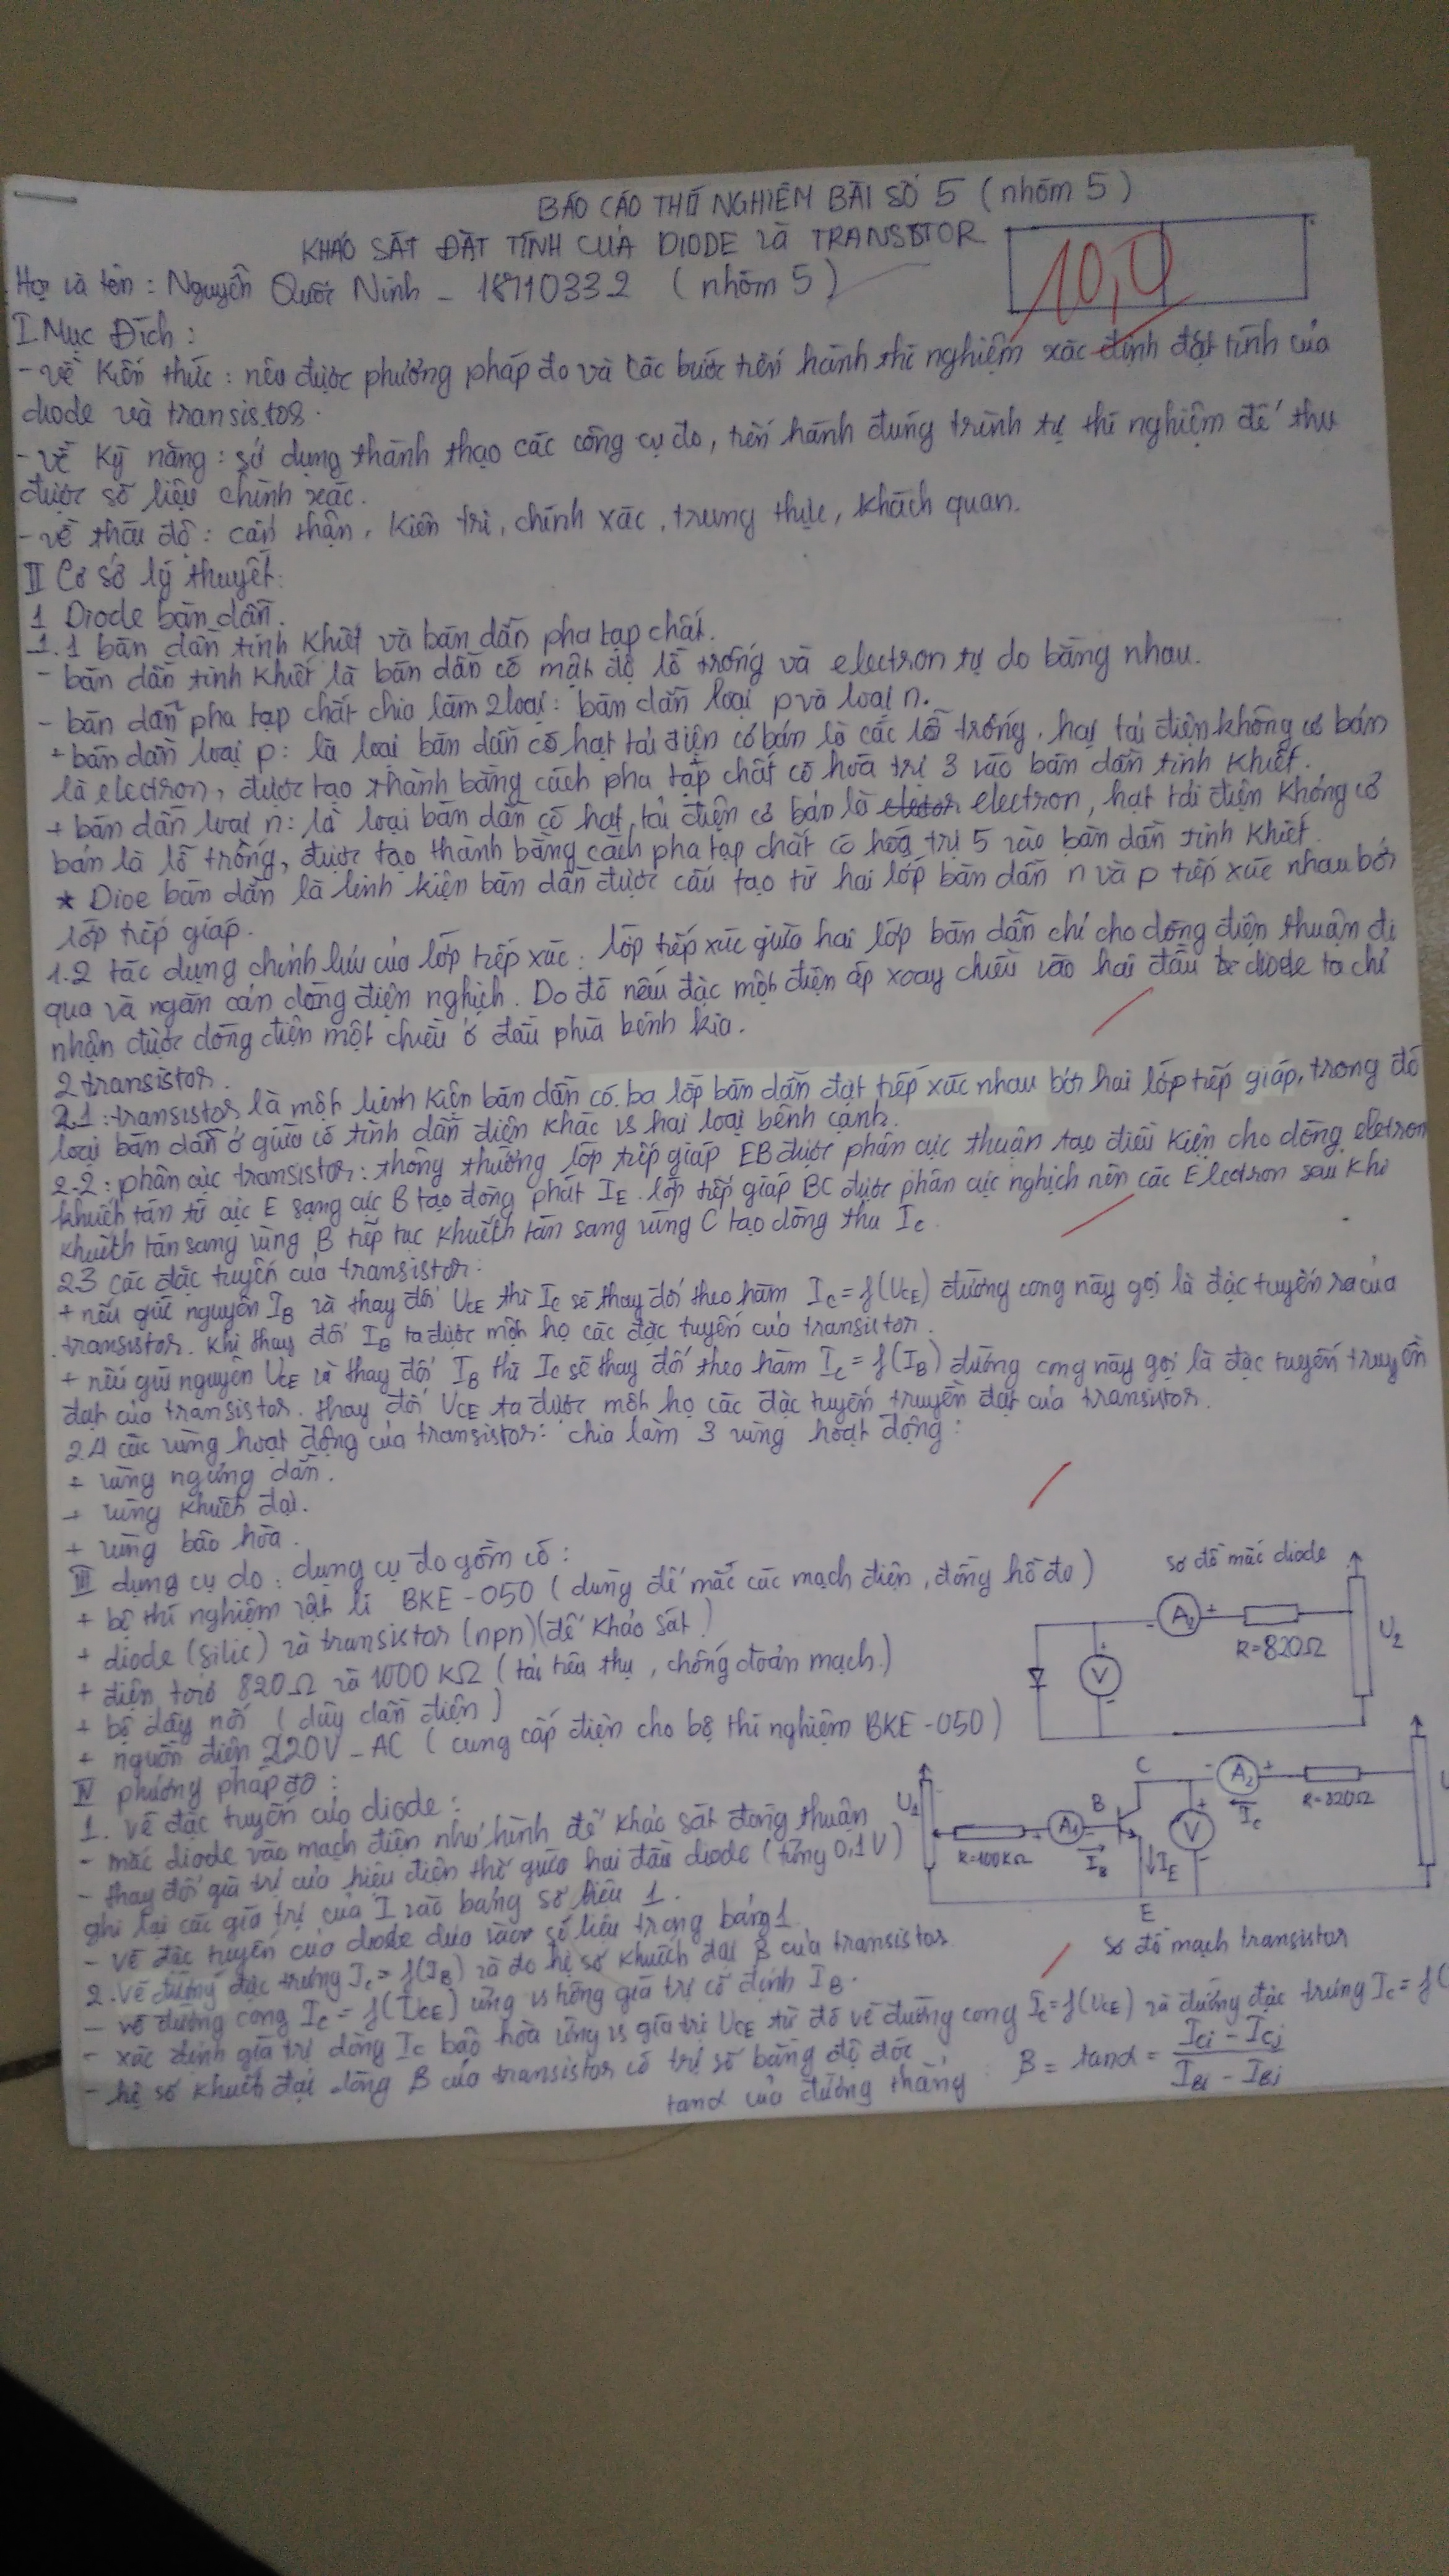 BÁO CÁO THÍ NGHIỆM BÀI SỐ 5 (nhóm 5)
KHẢO SÁT ĐẶT TÍNH CỦA DIODE và TRANSISTOR
10,0
Họ và tên: Nguyễn Quốc Ninh - 18110332 (nhóm 5)
I. Mục Đích:
- về Kiến thức: nêu được phương pháp đo và các bước tiến hành thí nghiệm xác định đặt tính của
diode và transistor.
- về Kỹ năng: sử dụng thành thạo các công cụ đo, tiến hành đúng trình tự thí nghiệm để thu
được số liệu chính xác.
- về thái độ: cẩn thận, kiên trì, chính xác, trung thực, khách quan.
II Cơ sở lý thuyết:
1 Diode bán dẫn.
1.1 bán dẫn tinh khiết và bán dẫn pha tạp chất.
- bán dẫn tinh khiết là bán dẫn có mật độ lỗ trống và electron tự do bằng nhau.
- bán dẫn pha tạp chất chia làm 2 loại: bán dẫn loại p và loại n.
+ bán dẫn loại p: là loại bán dẫn có hạt tải điện cơ bản là các lỗ trống, hạt tải điện không cơ bản
là electron, được tạo thành bằng cách pha tạp chất có hóa trị 3 vào bán dẫn tinh khiết.
+ bán dẫn loại n: là loại bán dẫn có hạt tải điện cơ bản là electron, hạt tải điện không cơ
bản là lỗ trống, được tạo thành bằng cách pha tạp chất có hóa trị 5 vào bán dẫn tinh khiết.
* Dioe bán dẫn là linh kiện bán dẫn được cấu tạo từ hai lớp bán dẫn n và p tiếp xúc nhau bởi
lớp tiếp giáp.
1.2 tác dụng chỉnh lưu của lớp tiếp xúc: lớp tiếp xúc giữa hai lớp bán dẫn chỉ cho dòng điện thuận đi
qua và ngăn cản dòng điện nghịch. Do đó nếu đặc một điện áp xoay chiều vào hai đầu diode ta chỉ
nhận được dòng điện một chiều ở đầu phía bênh kia.
2 transistor.
2.1: transistor là một linh kiện bán dẫn có ba lớp bán dẫn đạt tiếp xúc nhau bởi hai lớp tiếp giáp, trong đó
loại bán dẫn ở giữa có tính dẫn điện khác vs hai loại bênh cạnh.
2.2: phân cực transistor: thông thường lớp tiếp giáp EB được phân cực thuận tạo điều kiện cho dòng eletron
khuếch tán từ cực E sang cực B tạo dòng phát IE. lớp tiếp giáp BC được phân cực nghịch nên các Electron sau khi
khuếch tán sang vùng B tiếp tục khuếch tán sang vùng C tạo dòng thu Ic.
2.3 các đặc tuyến của transistor:
+ nếu giữ nguyên IB và thay đổi UCE thì Ic sẽ thay đổi theo hàm Ic = f(UCE) đường cong này gọi là đặc tuyến ra của
transistor. Khi thay đổi IB ta được một họ các đặc tuyến của transistor.
+ nếu giữ nguyên UCE và thay đổi IB thì Ic sẽ thay đổi theo hàm Ic = f(IB) đường cong này gọi là đặc tuyến truyền
đạt của transistor. thay đổi UCE ta được một họ các đặc tuyến truyền đạt của transistor.
2.4 các vùng hoạt động của transistor: chia làm 3 vùng hoạt động:
+ vùng ngưng dẫn.
+ vùng khuếch đại.
+ vùng bão hòa.
III dụng cụ đo: dụng cụ đo gồm có:
+ bộ thí nghiệm vật lí BKE-050 (dùng để mắc các mạch điện, đồng hồ đo)
+ diode (silic) và transistor (npn)(để khảo sát)
+ điện trở 820Ω và 1000 KΩ (tải tiêu thụ, chống đoản mạch.)
+ bộ dây nối (dây dẫn điện)
+ nguồn điện 220V-AC (cung cấp điện cho bộ thí nghiệm BKE-050)
sơ đồ mắc diode
A2
+
R=820Ω
U2
V
IV phương pháp đo:
1. vẽ đặc tuyến của diode:
- mắc diode vào mạch điện như hình để khảo sát dòng thuận
- thay đổi giá trị của hiệu điện thế giữa hai đầu diode (từng 0,1V)
ghi lại các giá trị của I vào bảng số liệu 1.
- vẽ đặc tuyến của diode dựa vào số liệu trong bảng 1.
U1
R=100KΩ
A1
B
IB
C
E
IE
V
A2
Ic
R=820Ω
sơ đồ mạch transistor
2. vẽ đường đặc trưng Ic = f(IB) và đo hệ số khuếch đại β của transistor
- vẽ đường cong Ic = f(UCE) ứng vs hông giá trị cố định IB.
- xác định giá trị dòng Ic bão hòa ứng vs giá trị UCE từ đó vẽ đường cong Ic=f(UCE) và đường đặc trưng Ic = f(
- hệ số khuếch đại dòng β của transistor có trị số bằng độ dốc
tanα của đường thẳng: β = tanα = (Ici - Icj)/(IBi - IBj)